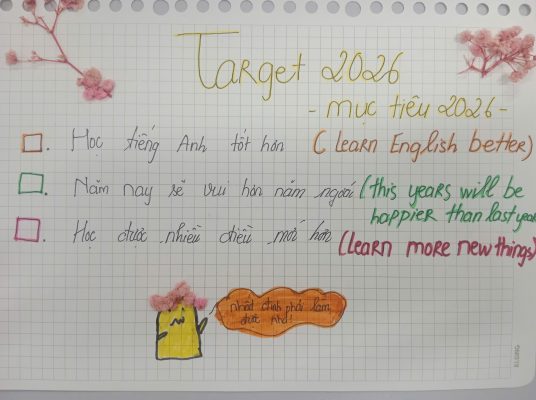 Target 2026
- mục tiêu 2026 -
Học tiếng Anh tốt hơn (Learn English better)
Năm nay sẽ vui hơn năm ngoái (this years will be
happier than last year
Học được nhiều điều mới hơn (Learn more new things)
nhất định phải làm
được nhé!
KLONG